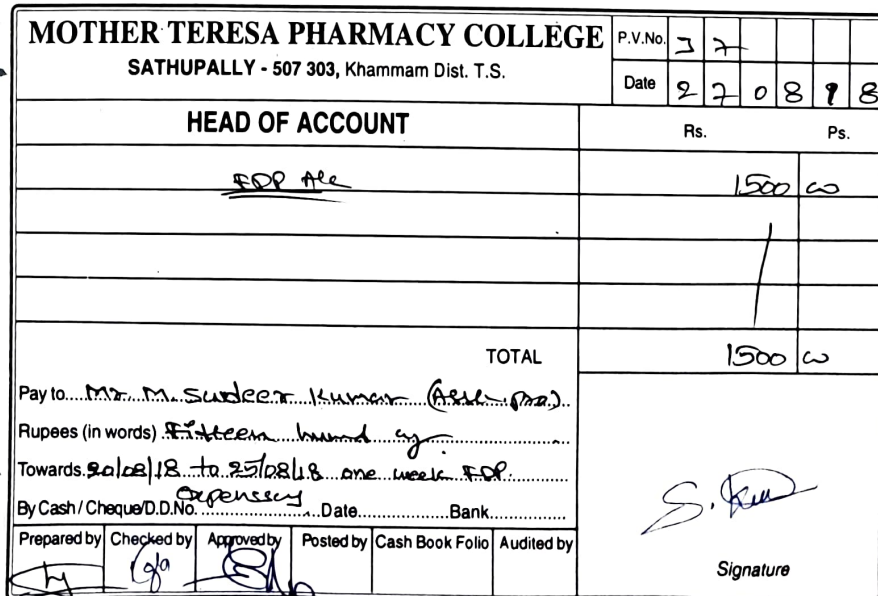 MOTHER TERESA PHARMACY COLLEGE
SATHUPALLY - 507 303, Khammam Dist. T.S.
P.V.No. 37
Date 270818
HEAD OF ACCOUNT Rs. Ps.
FDP A/c 1500 00
TOTAL 1500 00
Pay to....Mr. M. Sudeer Kumar
Rupees (in words) Fifteen hund
Towards. 20/08/18 to 25/08/18 one week FDP.
Expenses
By Cash / Cheque/D.D.No. Date Bank
Prepared by Checked by Approved by Posted by Cash Book Folio Audited by
Signature